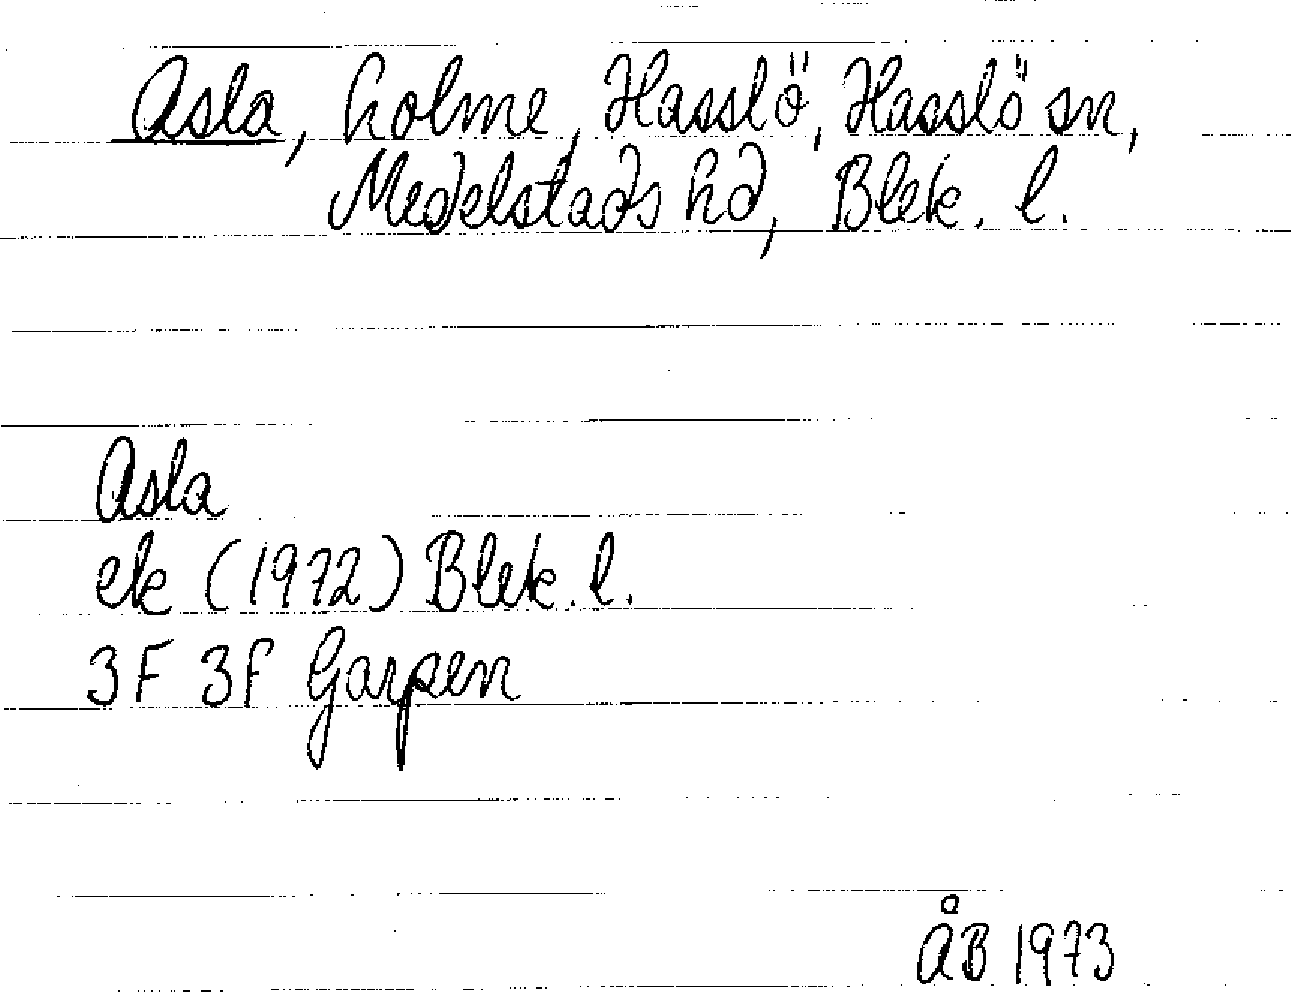 Asla, holme, Hasslö, Hasslö sn,
Medelstads hd, Blek. l.
Asla
ek (1972) Blek. l.
3F 3f Garpen
ÅB 1973